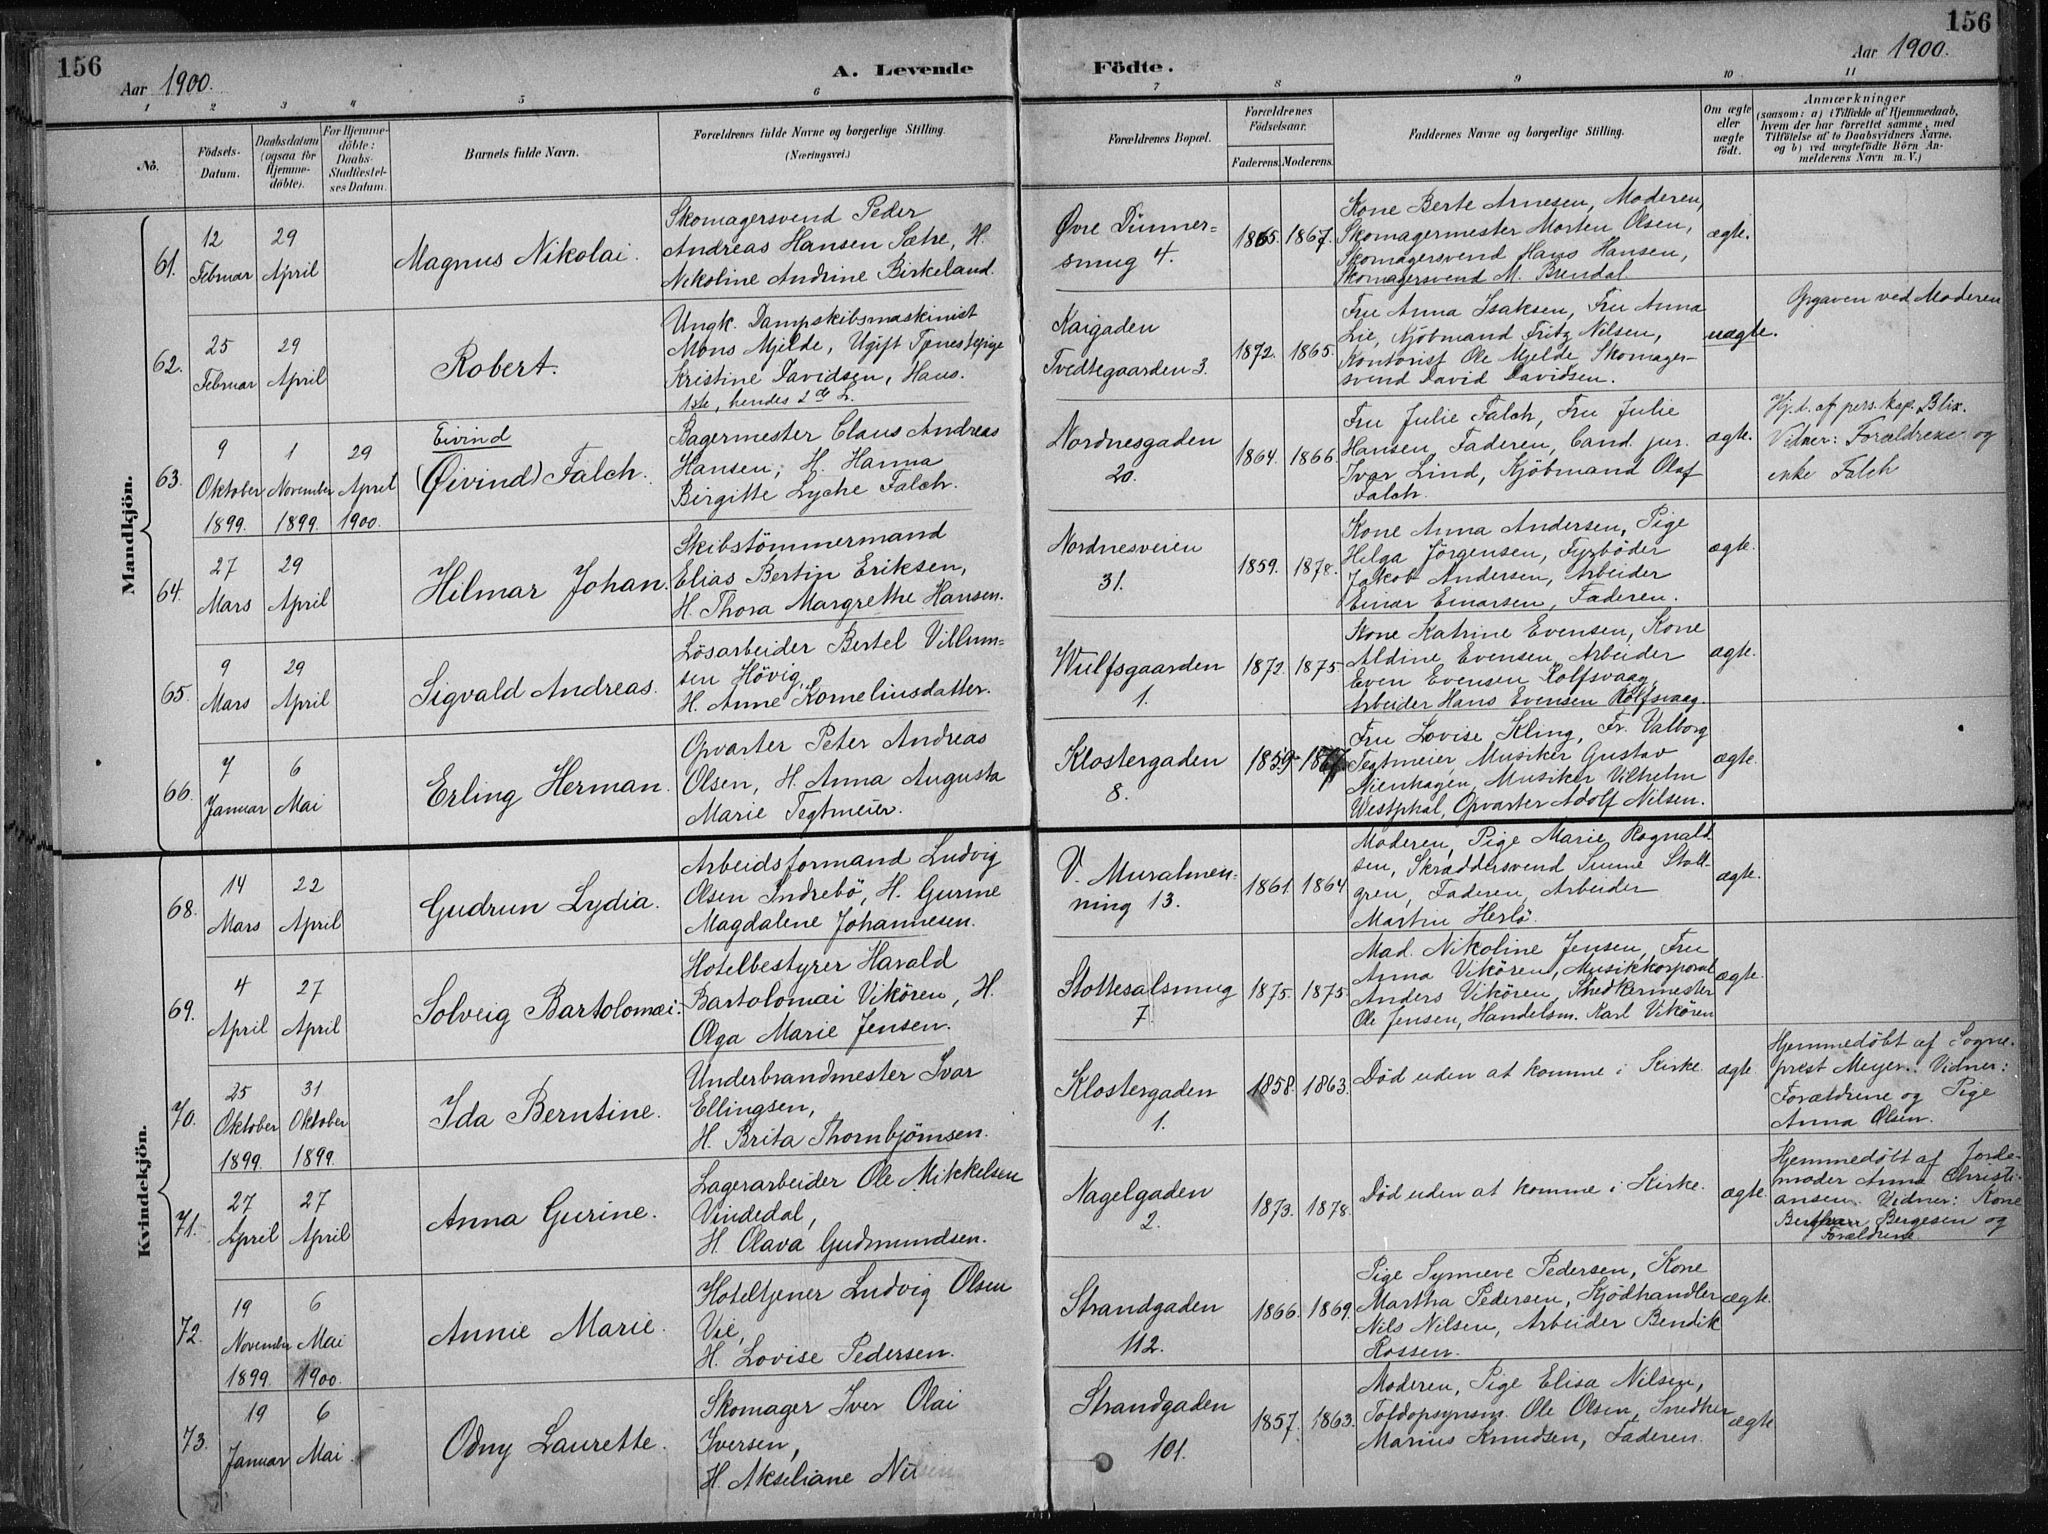 156
156
Aar 1900.
A. Levende
Födte.
Aar 1900.
1 2 3 4 5 6 7 8 9 10 11
No.
Födsels-
Datum.
Daabsdatum
(ogsaa for
Hjemme-
döbte).
For Hjemme-
döbte:
Daabs-
Stadfæstel-
ses Datum.
Barnets fulde Navn.
Forældrenes fulde Navne og borgerlige Stilling.
(Næringsvei.)
Forældrenes Bopæl.
Forældrenes
Födselsaar.
Faderens. Moderens.
Faddernes Navne og borgerlige Stilling.
Om ægte
eller
uægte
födt.
Anmærkninger
(saasom: a) i Tilfælde af Hjemmedaab,
hvem der har forrettet samme, med
Tilföielse af to Daabsvidners Navne,
og b) ved uægtefödte Börn An-
melderens Navn m. V.)
Mandkjön.
61.
12
Februar
29
April
Magnus Nikolai.
Skomagersvend Peder
Andreas Hansen Sætre, H.
Nikoline Andrine Birkeland.
Øvre Dünner-
smug 4.
1865. 1867.
Kone Berte Arnesen, Moderen,
Skomagermester Morten Olsen,
Skomagersvend Hans Hansen,
Skomagersvend M. Brendal
ægte.
62.
25
Februar
29
April
Robert.
Ungk. Dampskibsmaskinist
Mons Mjelde, Ugift Tjenestepige
Kristine Davidsen, Hans
1ste, hendes 2de L.
Kaigaden
Tvedtegaarden 3.
1872. 1865.
Fru Anna Isaksen, Fru Anna
Lie, Kjöbmand Fritz Nilsen,
Kontorist Ole Mjelde Skomager-
svend David Davidsen.
uægte.
Opgaven ved Moderen
63.
9
Oktober
1899.
1
November
1899.
29
April
1900.
Eivind
(Øivind) Falch.
Bagermester Claus Andreas
Hansen, H. Hanna
Birgitte Lyche Falch.
Nordnesgaden
20.
1864. 1866.
Fru Julie Falch, Fru Julie
Hansen, Faderen, Cand. jur.
Ivar Lind, Kjöbmand Olaf
Falch.
ægte.
Hj.d. af pers. kap. Blix.
Vidner: Forældrene og
enke Falch
64.
27
Mars
29
April
Hilmar Johan.
Skibstömmermand
Elias Bertin Eriksen,
H. Thora Margrethe Hansen.
Nordnesveien
31.
1859. 1878.
Kone Anna Andersen, Pige
Helga Jörgensen, Fyrböder
Jakob Andersen, Arbeider
Einar Einarsen, Faderen.
ægte.
65.
9
Mars
29
April
Sigvald Andreas.
Lösarbeider Bertel Villum-
sen Hövig,
H. Anne Korneliusdatter.
Wulfsgaarden
1.
1872. 1875.
Kone Katrine Evensen, Kone
Aldine Evensen, Arbeider
Even Evensen Rolfsvaag,
Arbeider Hans Evensen Rolfsvaag.
ægte.
66.
7
Januar
6
Mai
Erling Herman.
Opvarter Peter Andreas
Olsen, H. Anna Augusta
Marie Tegtmeier.
Klostergaden
8.
1859
Fru Lovise Kling, Fr. Valborg
Tegtmeier, Musiker Gustav
Nienhagen, Musiker Vilhelm
Westphal, Opvarter Adolf Nilsen.
ægte.
Kvindekjön.
68.
14
Mars
22
April
Gudrun Lydia.
Arbeidsformand Ludvig
Olsen Indrebö, H. Gurine
Magdalene Johannesen.
V. Muralmen-
ning 13.
1861. 1864
Moderen, Pige Marie Rognald-
sen, Skræddersvend Sinne Stolt-
gren, Faderen, Arbeider
Martin Herlö.
ægte.
69.
4
April
27
April
Solveig Bartolomæi.
Hotelbestyrer Harald
Bartolomai Vikören, H.
Olga Marie Jensen.
Stoltesalsmug
7
1875. 1875.
Mad. Nikoline Jensen, Fru
Anna Vikören, Musikkorporal
Anders Vikören, Snedkermester
Ole Jensen, Handelsm. Karl Vikören
ægte.
70.
25
Oktober
1899.
31
Oktober
1899.
Ida Berntine.
Underbrandmester Ivar
Ellingsen,
H. Brita Thornbjörnsen.
Klostergaden
1.
1858. 1863.
Död uden at komme i Kirke.
ægte.
Hjemmedöbt af Sogne-
prest Meyer. Vidner:
Forældrene og Pige
Anna Olsen.
71.
27
April
27
April
Anna Gurine.
Lagerarbeider Ole Mikkelsen
Vindedal,
H. Olava Gudmundsen.
Nagelgaden
2.
1873. 1878.
Död uden at komme i Kirke.
ægte.
Hjemmedöbt af Jorde-
moder Anna Christi-
ansen. Vidner: Kone
Bergesen og
Forældrene
72.
19
November
1899.
6
Mai
1900.
Annie Marie.
Hoteltjener Ludvig Olsen
Vie,
H. Lovise Pedersen.
Strandgaden
112.
1866. 1869.
Pige Synneve Pedersen, Kone
Martha Pedersen, Kjödhandler
Nils Nilsen, Arbeider Bendik
Rossen.
ægte.
73.
19
Januar
6
Mai.
Odny Laurette.
Skomager Iver Olai
Iversen,
H. Akseliane Nilsen
Strandgaden
101.
1857. 1863.
Moderen, Pige Elisa Nilsen,
Toldopsynsm. Ole Olsen, Snedker
Marius Knudsen, Faderen.
ægte